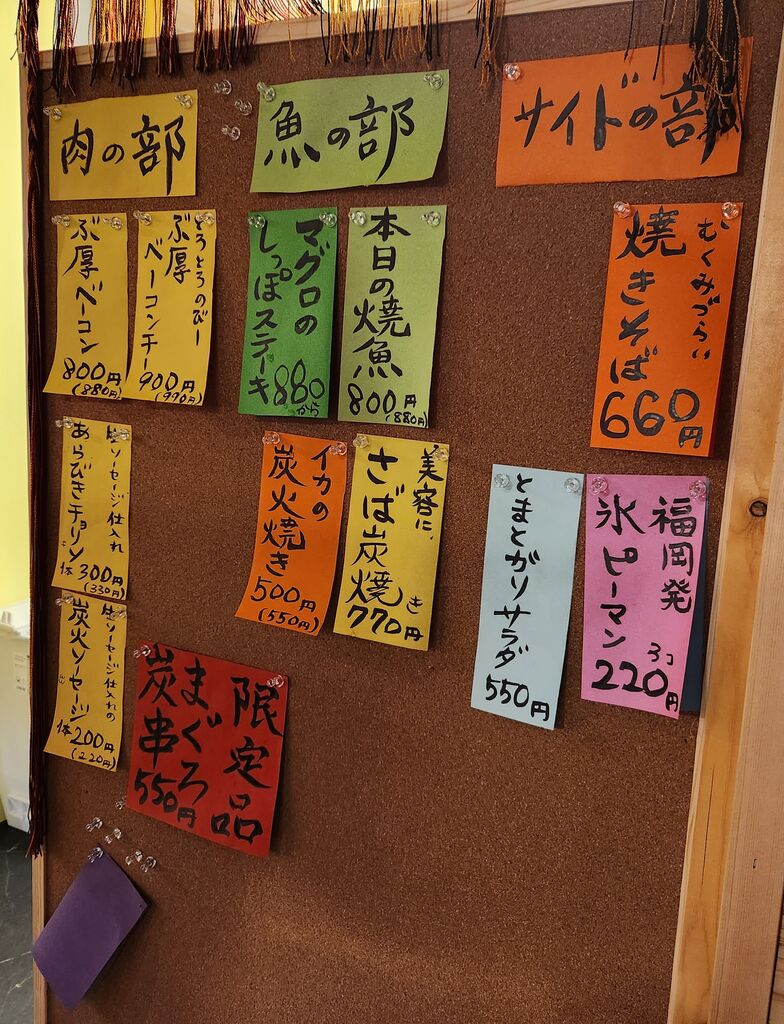 肉の部
ぶ厚ベーコン
800円
(880円)
とろとろのびー
ぶ厚
ベーコンチー
900円
(990円)
生ソーセージ仕入れ
あらびきチョリソ
1本300円
(330円)
生ソーセージ仕入れの
炭火ソーセージ
1本200円
(220円)
限定品
まぐろ
炭串
550円
魚の部
マグロの
しっぽステーキ
880
から
本日の焼魚
800円
(880円)
イカの
炭火焼き
500円
(550円)
美容に、
さば炭焼き
770円
サイドの部
むくみづらい
焼きそば
660円
とまとがりサラダ
550円
福岡発
氷ピーマン
3コ
220円